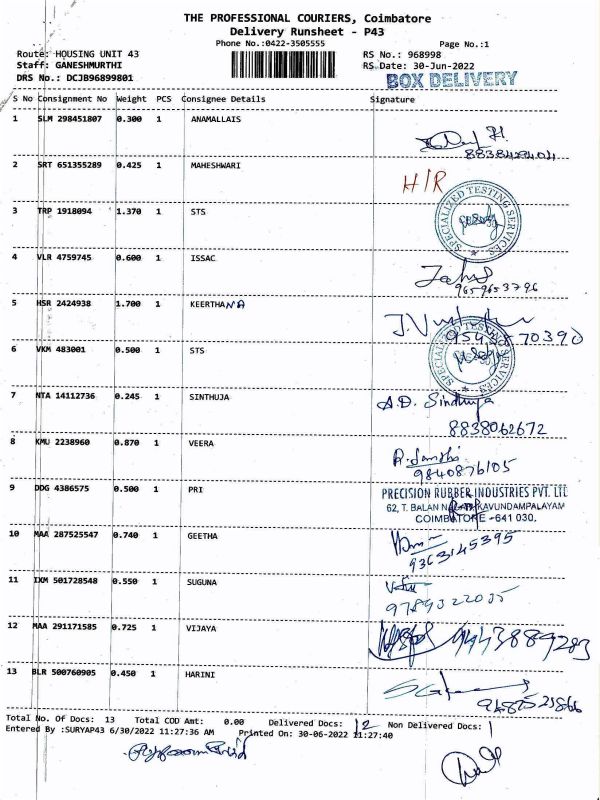 THE PROFESSIONAL COURIERS, Coimbatore
Delivery Runsheet - P43
Phone No.:0422-3505555
Page No.:1
Route: HOUSING UNIT 43
RS No.: 968998
Staff: GANESHMURTHI
RS Date: 30-Jun-2022
DRS No.: DCJB96899801
BOX DELIVERY
S No Consignment No Weight PCS Consignee Details Signature
1 SLM 298451807 0.300 1 ANAMALLAIS
2 SRT 651355289 0.425 1 MAHESHWARI
H/R
SPECIALIZED TESTING SERVICES
3 TRP 1918094 1.370 1 STS
4 VLR 4759745 0.600 1 ISSAC
9659653796
5 HSR 2424938 1.700 1 KEERTHANA
70390
SPECIALIZED TESTING SERVICES
6 VKM 483001 0.500 1 STS
7 NTA 14112736 0.245 1 SINTHUJA
A.D. Sindhuja
8838062672
8 KMU 2238960 0.870 1 VEERA
9840876105
9 DDG 4386575 0.500 1 PRI
PRECISION RUBBER INDUSTRIES PVT. LTD
62, T. BALAN KAVUNDAMPALAYAM
COIMBATORE -641 030.
10 MAA 287525547 0.740 1 GEETHA
9363145395
11 IXM 501728548 0.550 1 SUGUNA
9789322035
12 MAA 291171585 0.725 1 VIJAYA
9443889283
13 BLR 500760905 0.450 1 HARINI
9487525866
Total No. Of Docs: 13 Total COD Amt: 0.00 Delivered Docs: 12 Non Delivered Docs: 1
Entered By :SURYAP43 6/30/2022 11:27:36 AM Printed On: 30-06-2022 11:27:40